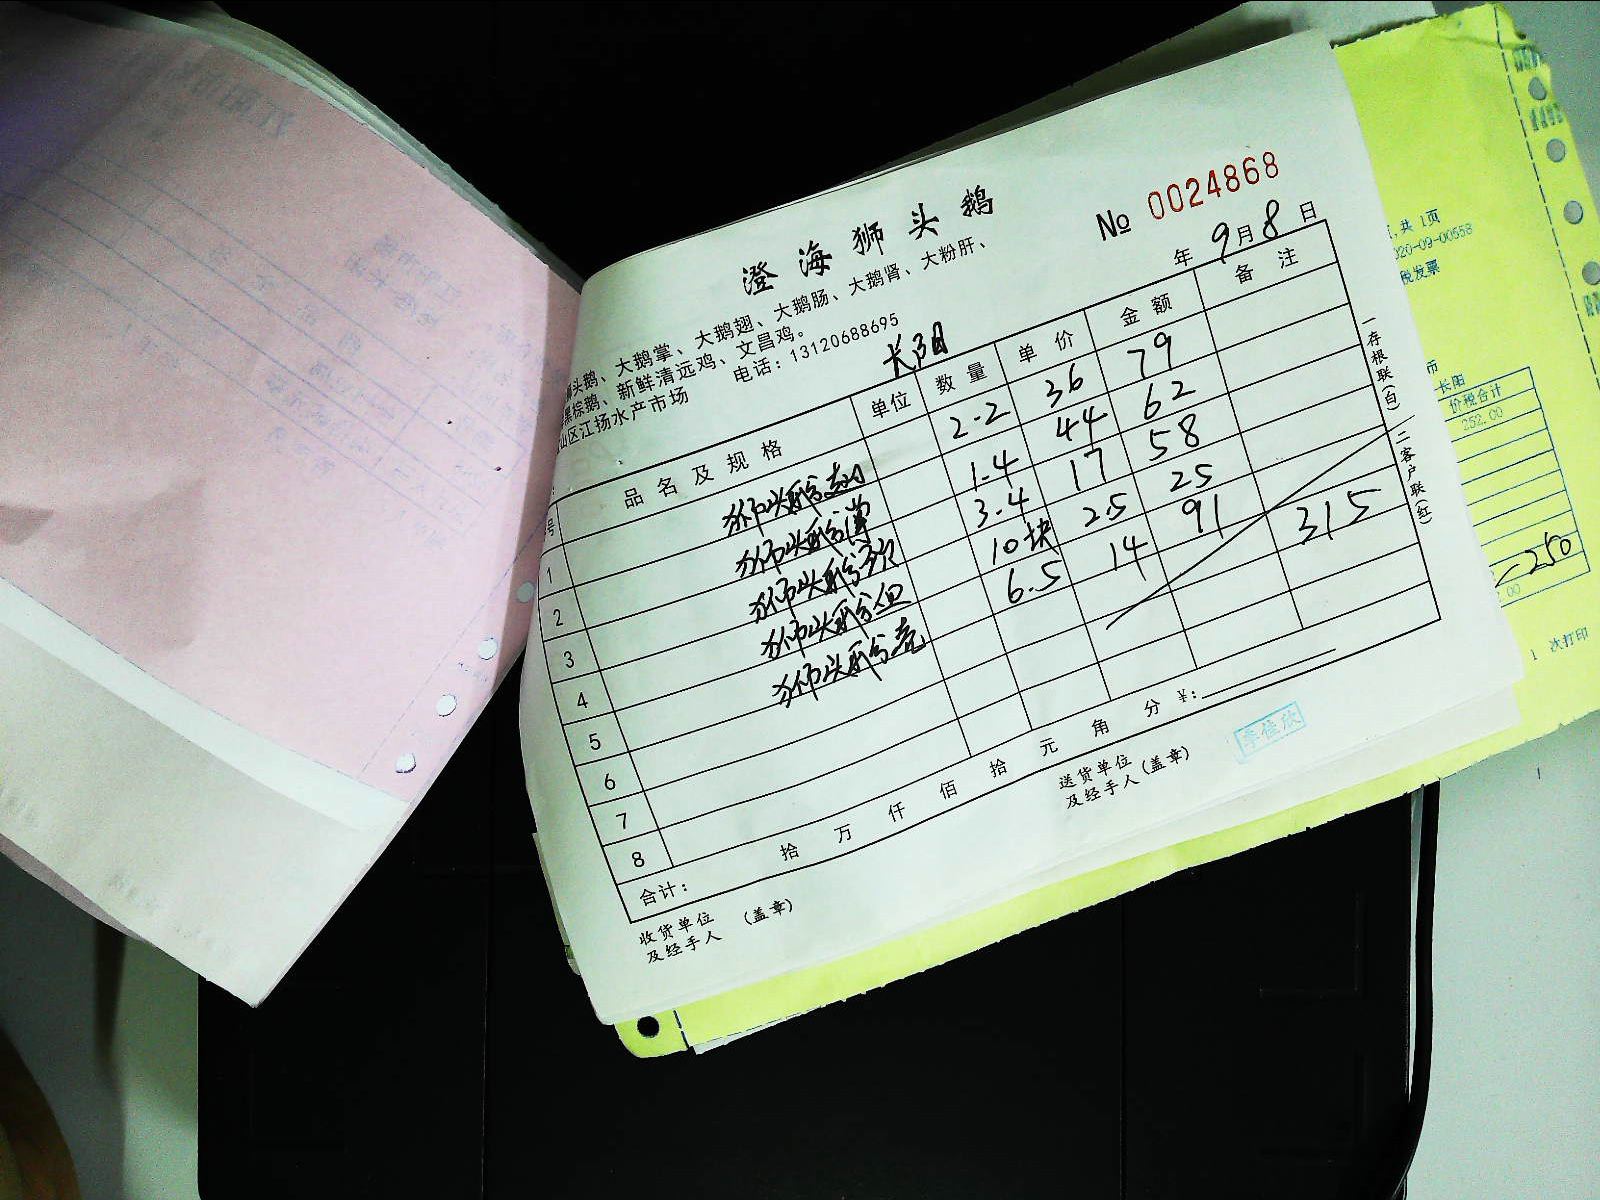 澄海狮头鹅
№ 0024868
狮头鹅、大鹅掌、大鹅翅、大鹅肠、大鹅肾、大粉肝、
黑棕鹅、新鲜清远鸡、文昌鸡。
山区江扬水产市场 电话：13120688695
长阳
年 9月8日
号 品名及规格 单位 数量 单价 金额 备注
1 狮头鹅翅 2.2 36 79
2 狮头鹅掌 1.4 44 62
3 狮头鹅 3.4 17 58
4 狮头鹅血 10块 2.5 25
5 狮头鹅壳 6.5 14 91
315
6
7
8
合计： 拾 万 仟 佰 拾 元 角 分 ￥：
收货单位
及经手人 (盖章)
送货单位
及经手人 (盖章)
李佳欣
一存根联(白) 二客户联(红)
共 1页
020-09-00558
税发票
市
长阳
价税合计
252.00
250
2.00
1 次打印